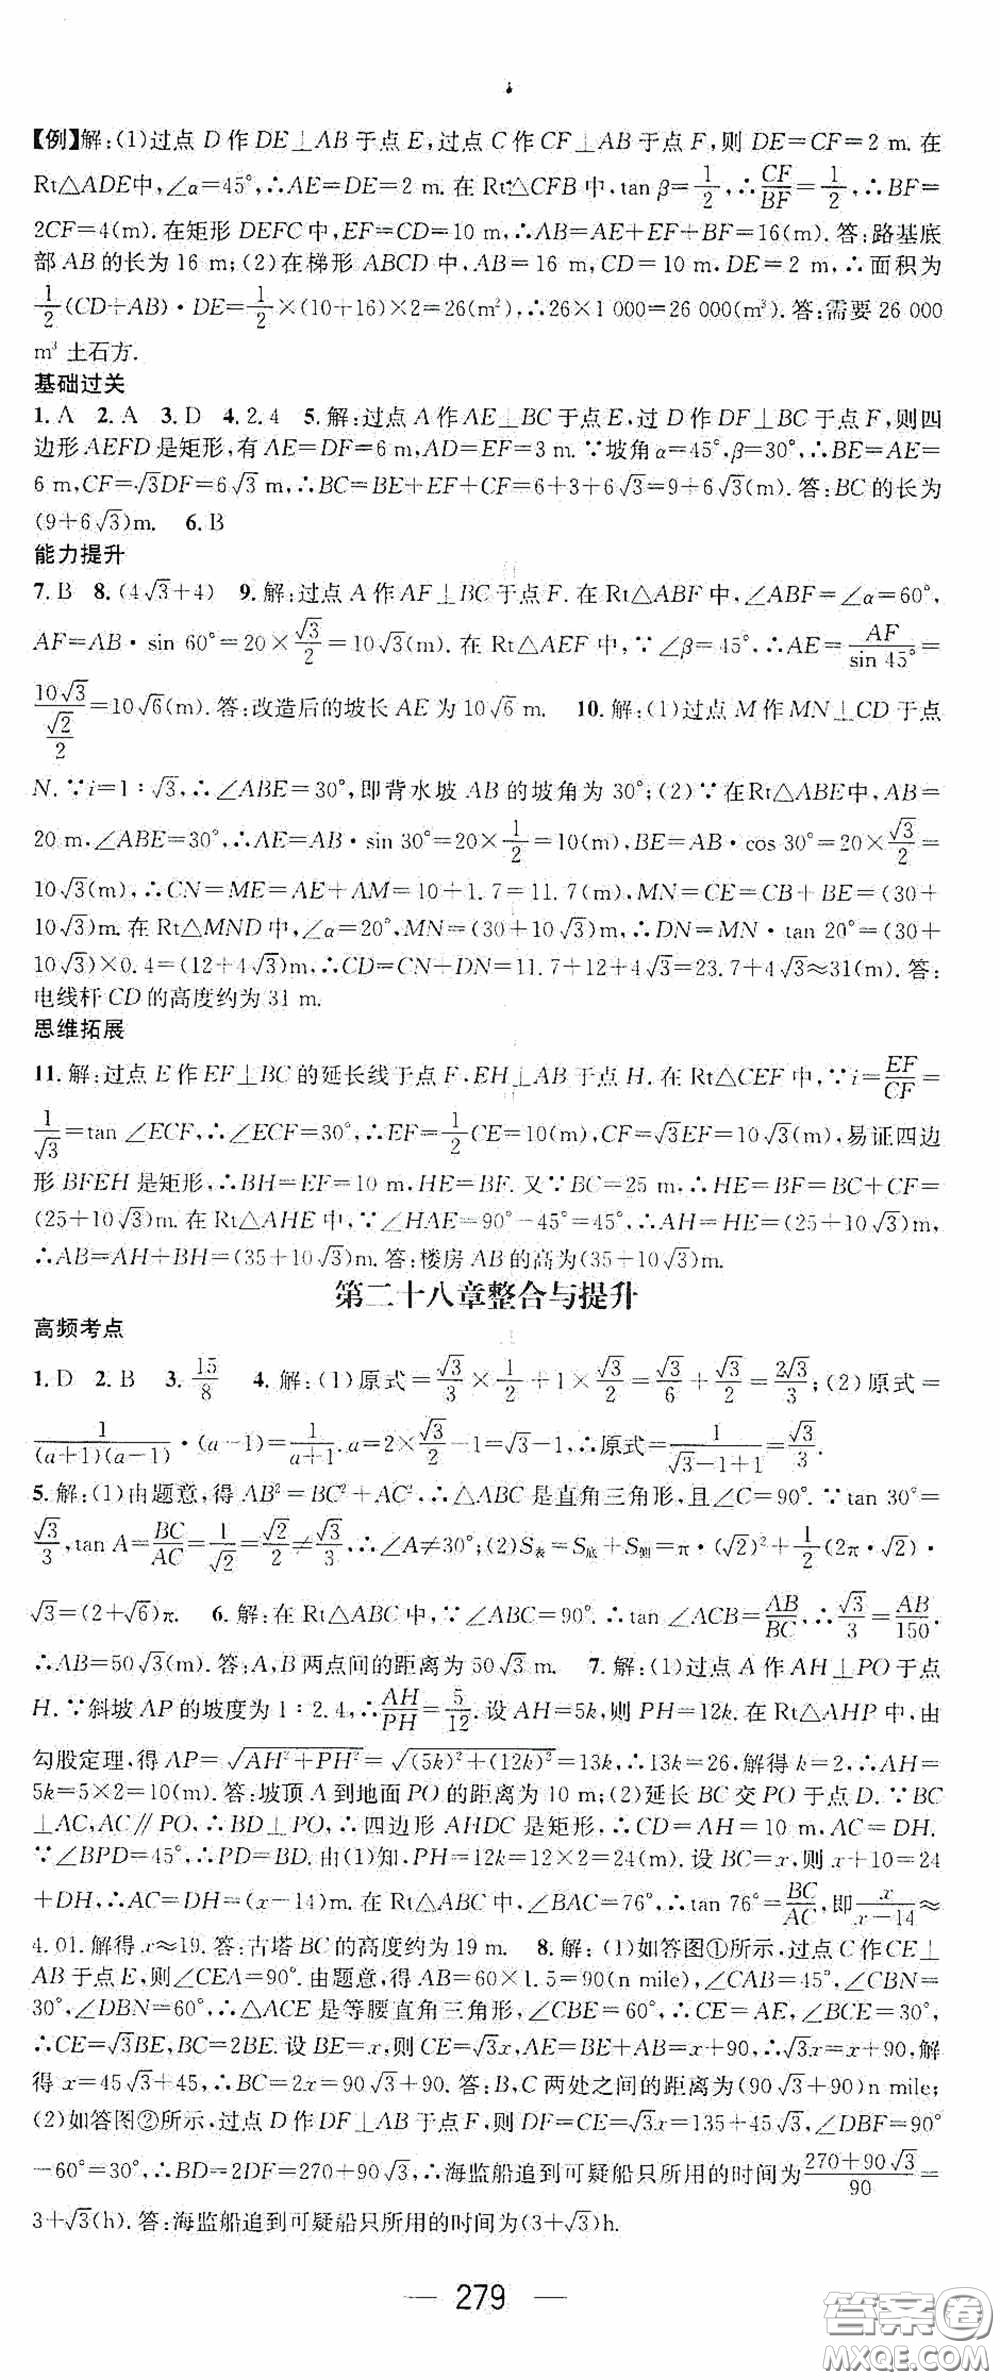 【例】解:(1)过点 D 作 DE⊥AB 于点 E,过点 C 作 CF⊥AB 于点 F,则 DE=CF=2 m. 在
Rt△ADE中,∠α=45°,∴AE=DE=2 m. 在 Rt△CFB 中,tan β=1/2,∴CF/BF=1/2,∴BF=
2CF=4(m). 在矩形 DEFC 中,EF=CD=10 m,∴AB=AE+EF+BF=16(m). 答:路基底
部 AB 的长为 16 m;(2)在梯形 ABCD 中,AB=16 m,CD=10 m,DE=2 m,∴面积为
1/2(CD+AB)·DE=1/2×(10+16)×2=26(m²),∴26×1 000=26 000(m³). 答:需要 26 000
m³ 土石方.
基础过关
1. A 2. A 3. D 4. 2.4 5. 解:过点 A 作 AE⊥BC 于点 E,过 D 作 DF⊥BC 于点 F,则四
边形 AEFD 是矩形,有 AE=DF=6 m,AD=EF=3 m. ∵坡角 α=45°,β=30°,∴BE=AE=
6 m,CF=√3DF=6√3 m,∴BC=BE+EF+CF=6+3+6√3=9+6√3(m). 答:BC 的长为
(9+6√3)m. 6. B
能力提升
7. B 8. (4√3+4) 9. 解:过点 A 作 AF⊥BC 于点 F. 在 Rt△ABF 中,∠ABF=∠α=60°,
AF=AB·sin 60°=20×√3/2=10√3(m). 在 Rt△AEF 中,∵∠β=45°,∴AE=AF/sin 45°=
10√3/(√2/2)=10√6(m). 答:改造后的坡长 AE 为 10√6 m. 10. 解:(1)过点 M 作 MN⊥CD 于点
N. ∵i=1∶√3,∴∠ABE=30°,即背水坡 AB 的坡角为 30°;(2)∵在Rt△ABE中,AB=
20 m,∠ABE=30°,∴AE=AB·sin 30°=20×1/2=10(m),BE=AB·cos 30°=20×√3/2=
10√3(m),∴CN=ME=AE+AM=10+1.7=11.7(m),MN=CE=CB+BE=(30+
10√3)m. 在 Rt△MND 中,∠α=20°,MN=(30+10√3)m,∴DN=MN·tan 20°=(30+
10√3)×0.4=(12+4√3)m,∴CD=CN+DN=11.7+12+4√3=23.7+4√3≈31(m). 答:
电线杆 CD 的高度约为 31 m.
思维拓展
11. 解:过点 E 作 EF⊥BC 的延长线于点 F,EH⊥AB 于点 H. 在 Rt△CEF 中,∵i=EF/CF=
1/√3=tan ∠ECF,∴∠ECF=30°,∴EF=1/2CE=10(m),CF=√3EF=10√3(m),易证四边
形 BFEH 是矩形,∴BH=EF=10 m,HE=BF. 又∵BC=25 m,∴HE=BF=BC+CF=
(25+10√3)m. 在 Rt△AHE 中,∵∠HAE=90°-45°=45°,∴AH=HE=(25+10√3)m,
∴AB=AH+BH=(35+10√3)m. 答:楼房 AB 的高为(35+10√3)m.
第二十八章整合与提升
高频考点
1. D 2. B 3. 15/8 4. 解:(1)原式=√3/3×1/2+1×√3/2=√3/6+√3/2=2√3/3;(2)原式=
1/((a+1)(a-1))·(a-1)=1/(a+1). a=2×√3/2-1=√3-1,∴原式=1/(√3-1+1)=√3/3.
5. 解:(1)由题意,得 AB²=BC²+AC²,∴△ABC 是直角三角形,且∠C=90°. ∵tan 30°=
√3/3,tan A=BC/AC=1/√2=√2/2≠√3/3,∴∠A≠30°;(2)S表=S底+S侧=π·(√2)²+1/2(2π·√2)·
√3=(2+√6)π. 6. 解:在 Rt△ABC 中,∵∠ABC=90°. ∴tan ∠ACB=AB/BC,∴√3/3=AB/150.
∴AB=50√3(m). 答:A,B 两点间的距离为 50√3 m. 7. 解:(1)过点 A 作 AH⊥PO 于点
H. ∵斜坡 AP 的坡度为 1∶2.4,∴AH/PH=5/12. 设 AH=5k,则 PH=12k. 在 Rt△AHP 中,由
勾股定理,得 AP=√(AH²+PH²)=√((5k)²+(12k)²)=13k,∴13k=26. 解得 k=2,∴AH=
5k=5×2=10(m). 答:坡顶 A 到地面 PO 的距离为 10 m;(2)延长 BC 交 PO 于点 D. ∵BC
⊥AC,AC∥PO,∴BD⊥PO,∴四边形 AHDC 是矩形,∴CD=AH=10 m,AC=DH.
∵∠BPD=45°,∴PD=BD. 由(1)知,PH=12k=12×2=24(m). 设 BC=x,则 x+10=24
+DH,∴AC=DH=(x-14)m. 在 Rt△ABC 中,∠BAC=76°,∴tan 76°=BC/AC,即x/(x-14)≈
4.01. 解得 x≈19. 答:古塔 BC 的高度约为 19 m. 8. 解:(1)如答图①所示,过点 C 作 CE⊥
AB 于点 E,则∠CEA=90°. 由题意,得 AB=60×1.5=90(n mile),∠CAB=45°,∠CBN=
30°,∠DBN=60°,∴△ACE 是等腰直角三角形,∠CBE=60°,∴CE=AE,∠BCE=30°,
∴CE=√3BE,BC=2BE. 设 BE=x,则 CE=√3x,AE=BE+AB=x+90,∴√3x=x+90,解
得 x=45√3+45,∴BC=2x=90√3+90. 答:B,C 两处之间的距离为(90√3+90)n mile;
(2)如答图②所示,过点 D 作 DF⊥AB 于点 F,则 DF=CE=√3x=135+45√3,∠DBF=90°
-60°=30°,∴BD=2DF=270+90√3,∴海监船追到可疑船只所用的时间为(270+90√3)/90=
3+√3(h). 答:海监船追到可疑船只所用的时间为(3+√3)h.
— 279 —
答案圈
MXQE.COM